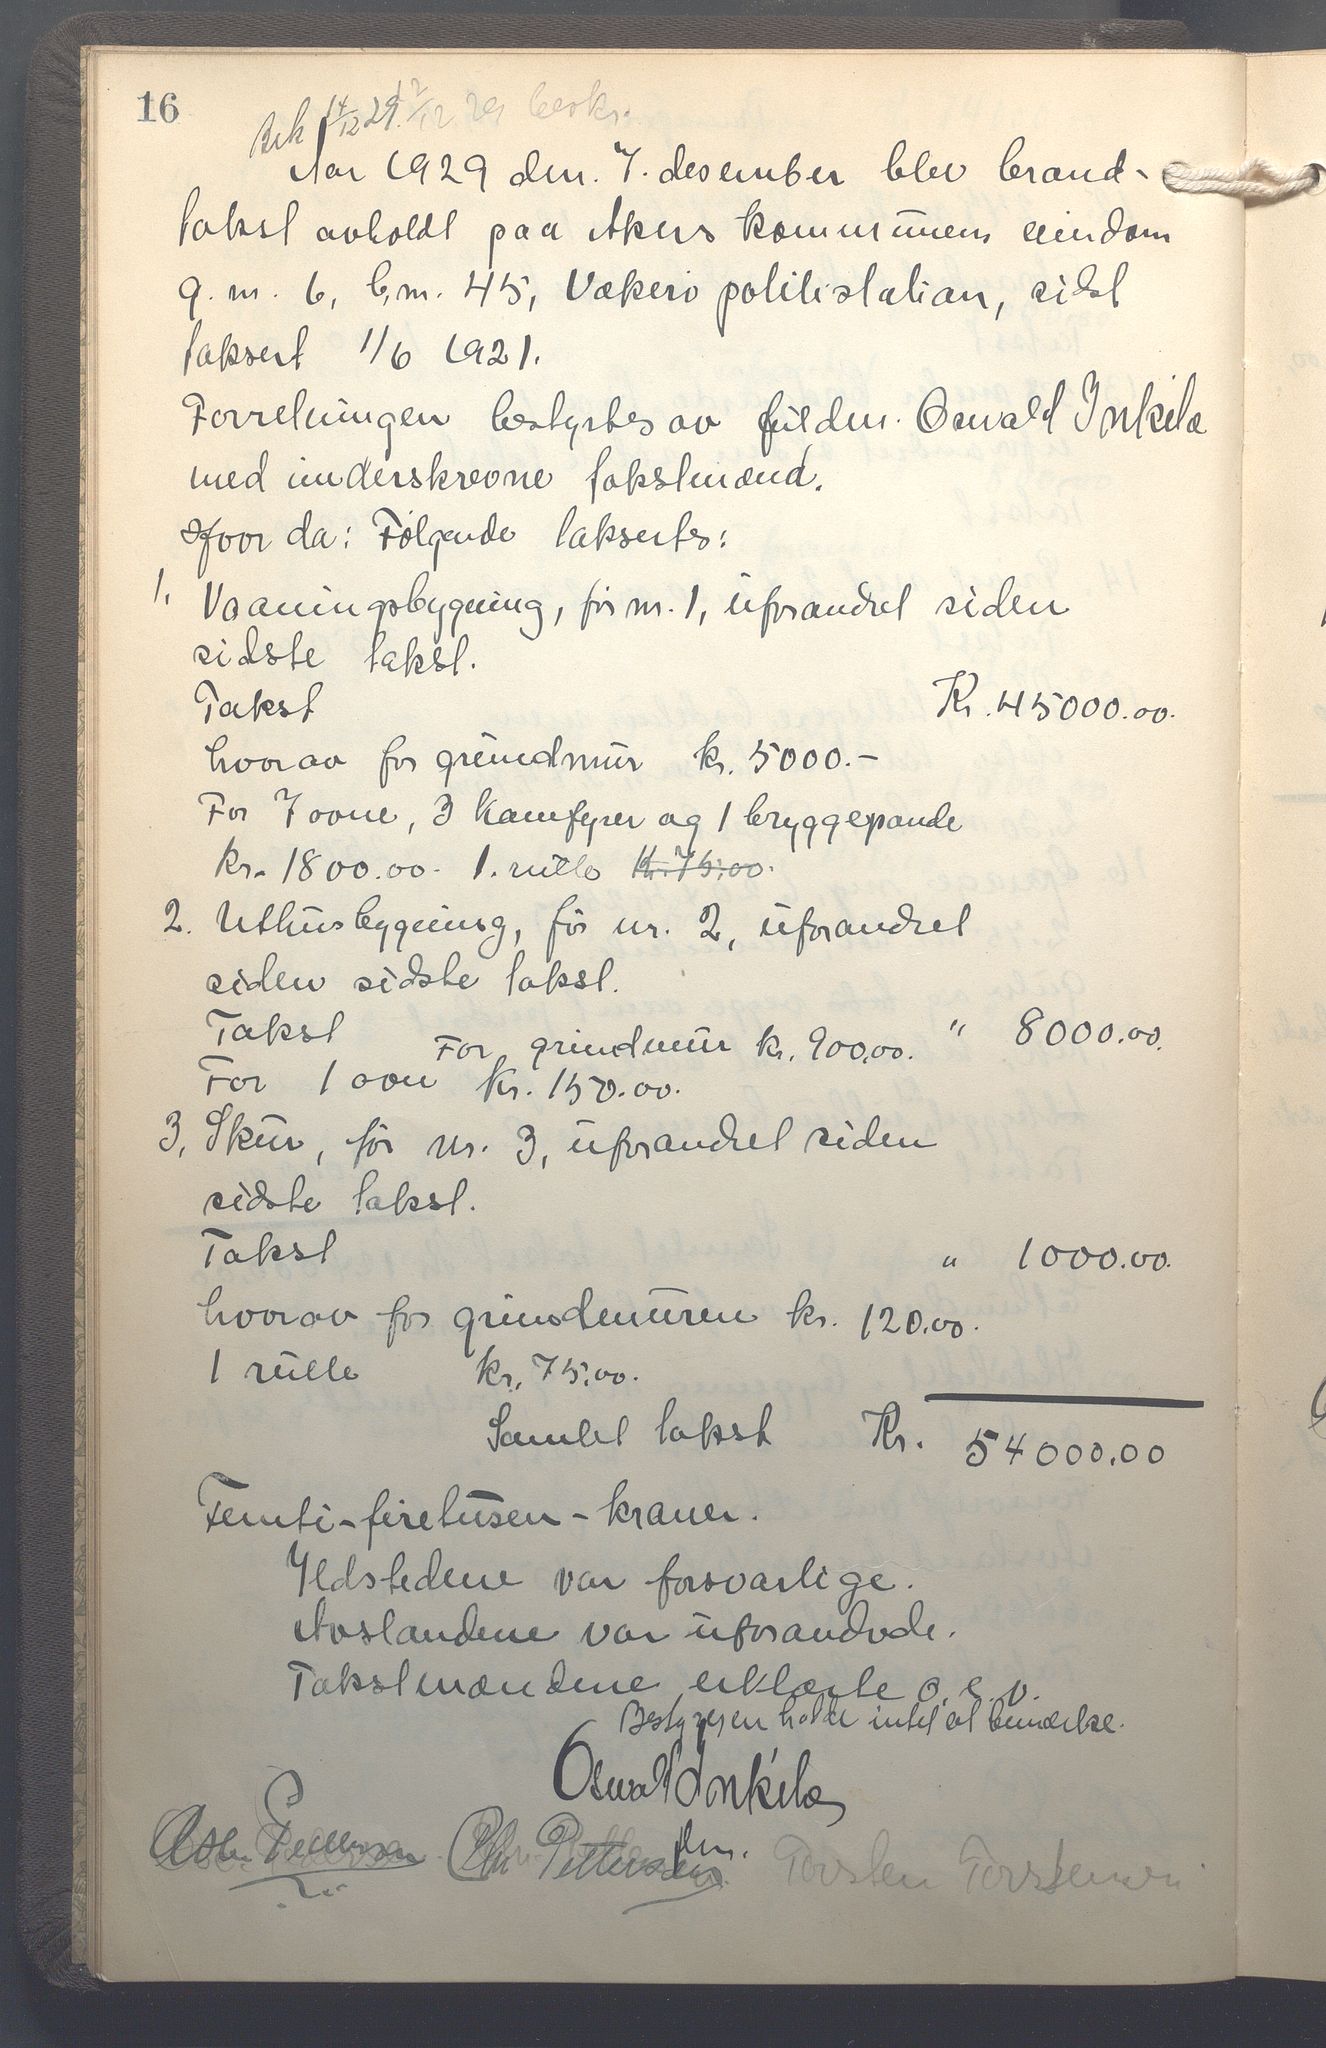 16
Bek 14/12 29. 12/12 29 beskr.
Aar 1929 den. 7. desember blev brand-
takst avholdt paa Akers kommunens eiendom
g. nr. 6, b.nr. 45, Vækerø politistation, sidst
taksert 1/6 1921.
Forretningen bestyrtes av fuldm. Oswald Inkila
med underskrevne takstmænd.
Hvor da: Følgende taksertes:
1. Vaaningsbygning, før nr. 1, uforandret siden
sidste takst.
Takst Kr. 45000.00.
hvorav for grundmur kr. 5000.-
For 7 ovne, 3 komfyrer og 1 bryggepande
kr. 1800.00. 1. rulle kr. 75.00.
2. Uthusbygning, før nr. 2, uforandret
siden sidste takst.
Takst For grundmur kr. 900.00. " 8000.00.
For 1 ovn kr. 150.00.
3. Skur, før nr. 3, uforandret siden
sidste takst.
Takst " 1000.00.
hvorav for grundmuren kr. 120.00.
1 rulle kr. 75.00.
Samlet takst Kr. 54000.00
Femti-firetusen-kroner.
Ildstedene var forsvarlige.
Avstandene var uforandrede.
Takstmændene erklærte o. s. v.
Bestyreren hadde intet at bemærke.
Oswald Inkila
fm.
Chr. Pettersen Torsten Torstensen